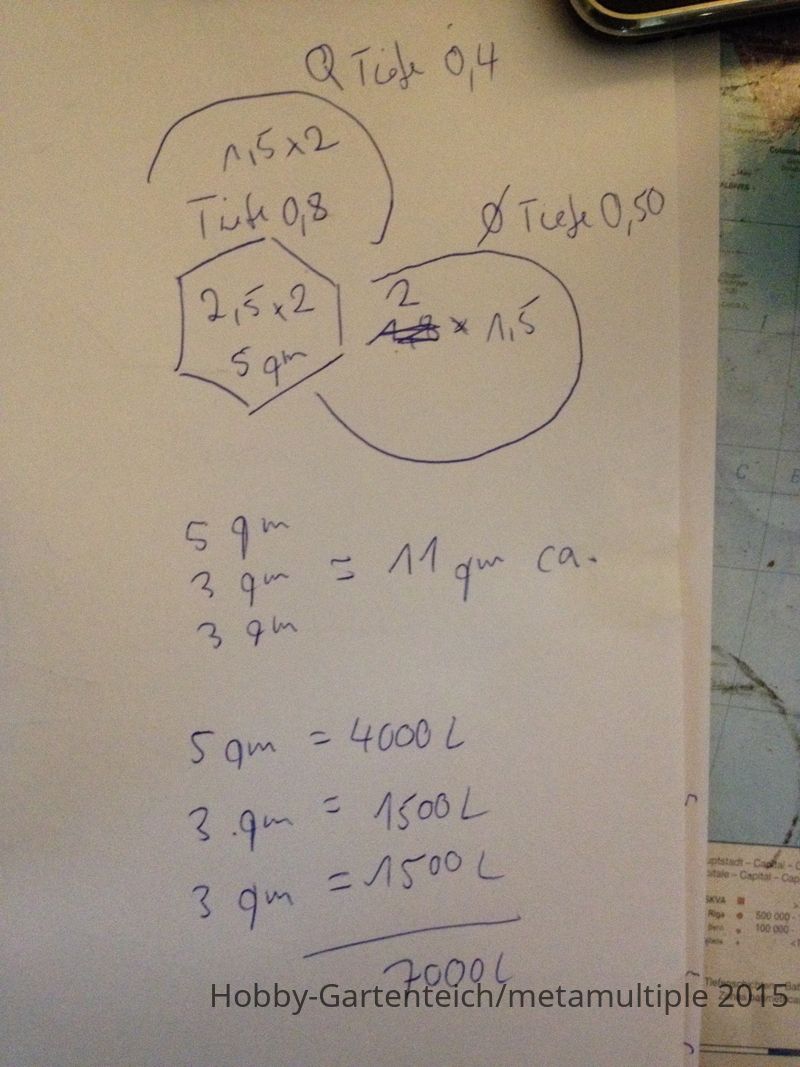 Ø Tiefe 0,4
1,5 x 2
Tiefe 0,8
Ø Tiefe 0,50
2,5 x 2
5 qm
2
x 1,5
5 qm
3 qm = 11 qm ca.
3 qm
5 qm = 4000 L
3 qm = 1500 L
3 qm = 1500 L
7000 L
Hobby-Gartenteich/metamultiple 2015
C
Riga
500 000 -
100 000 -